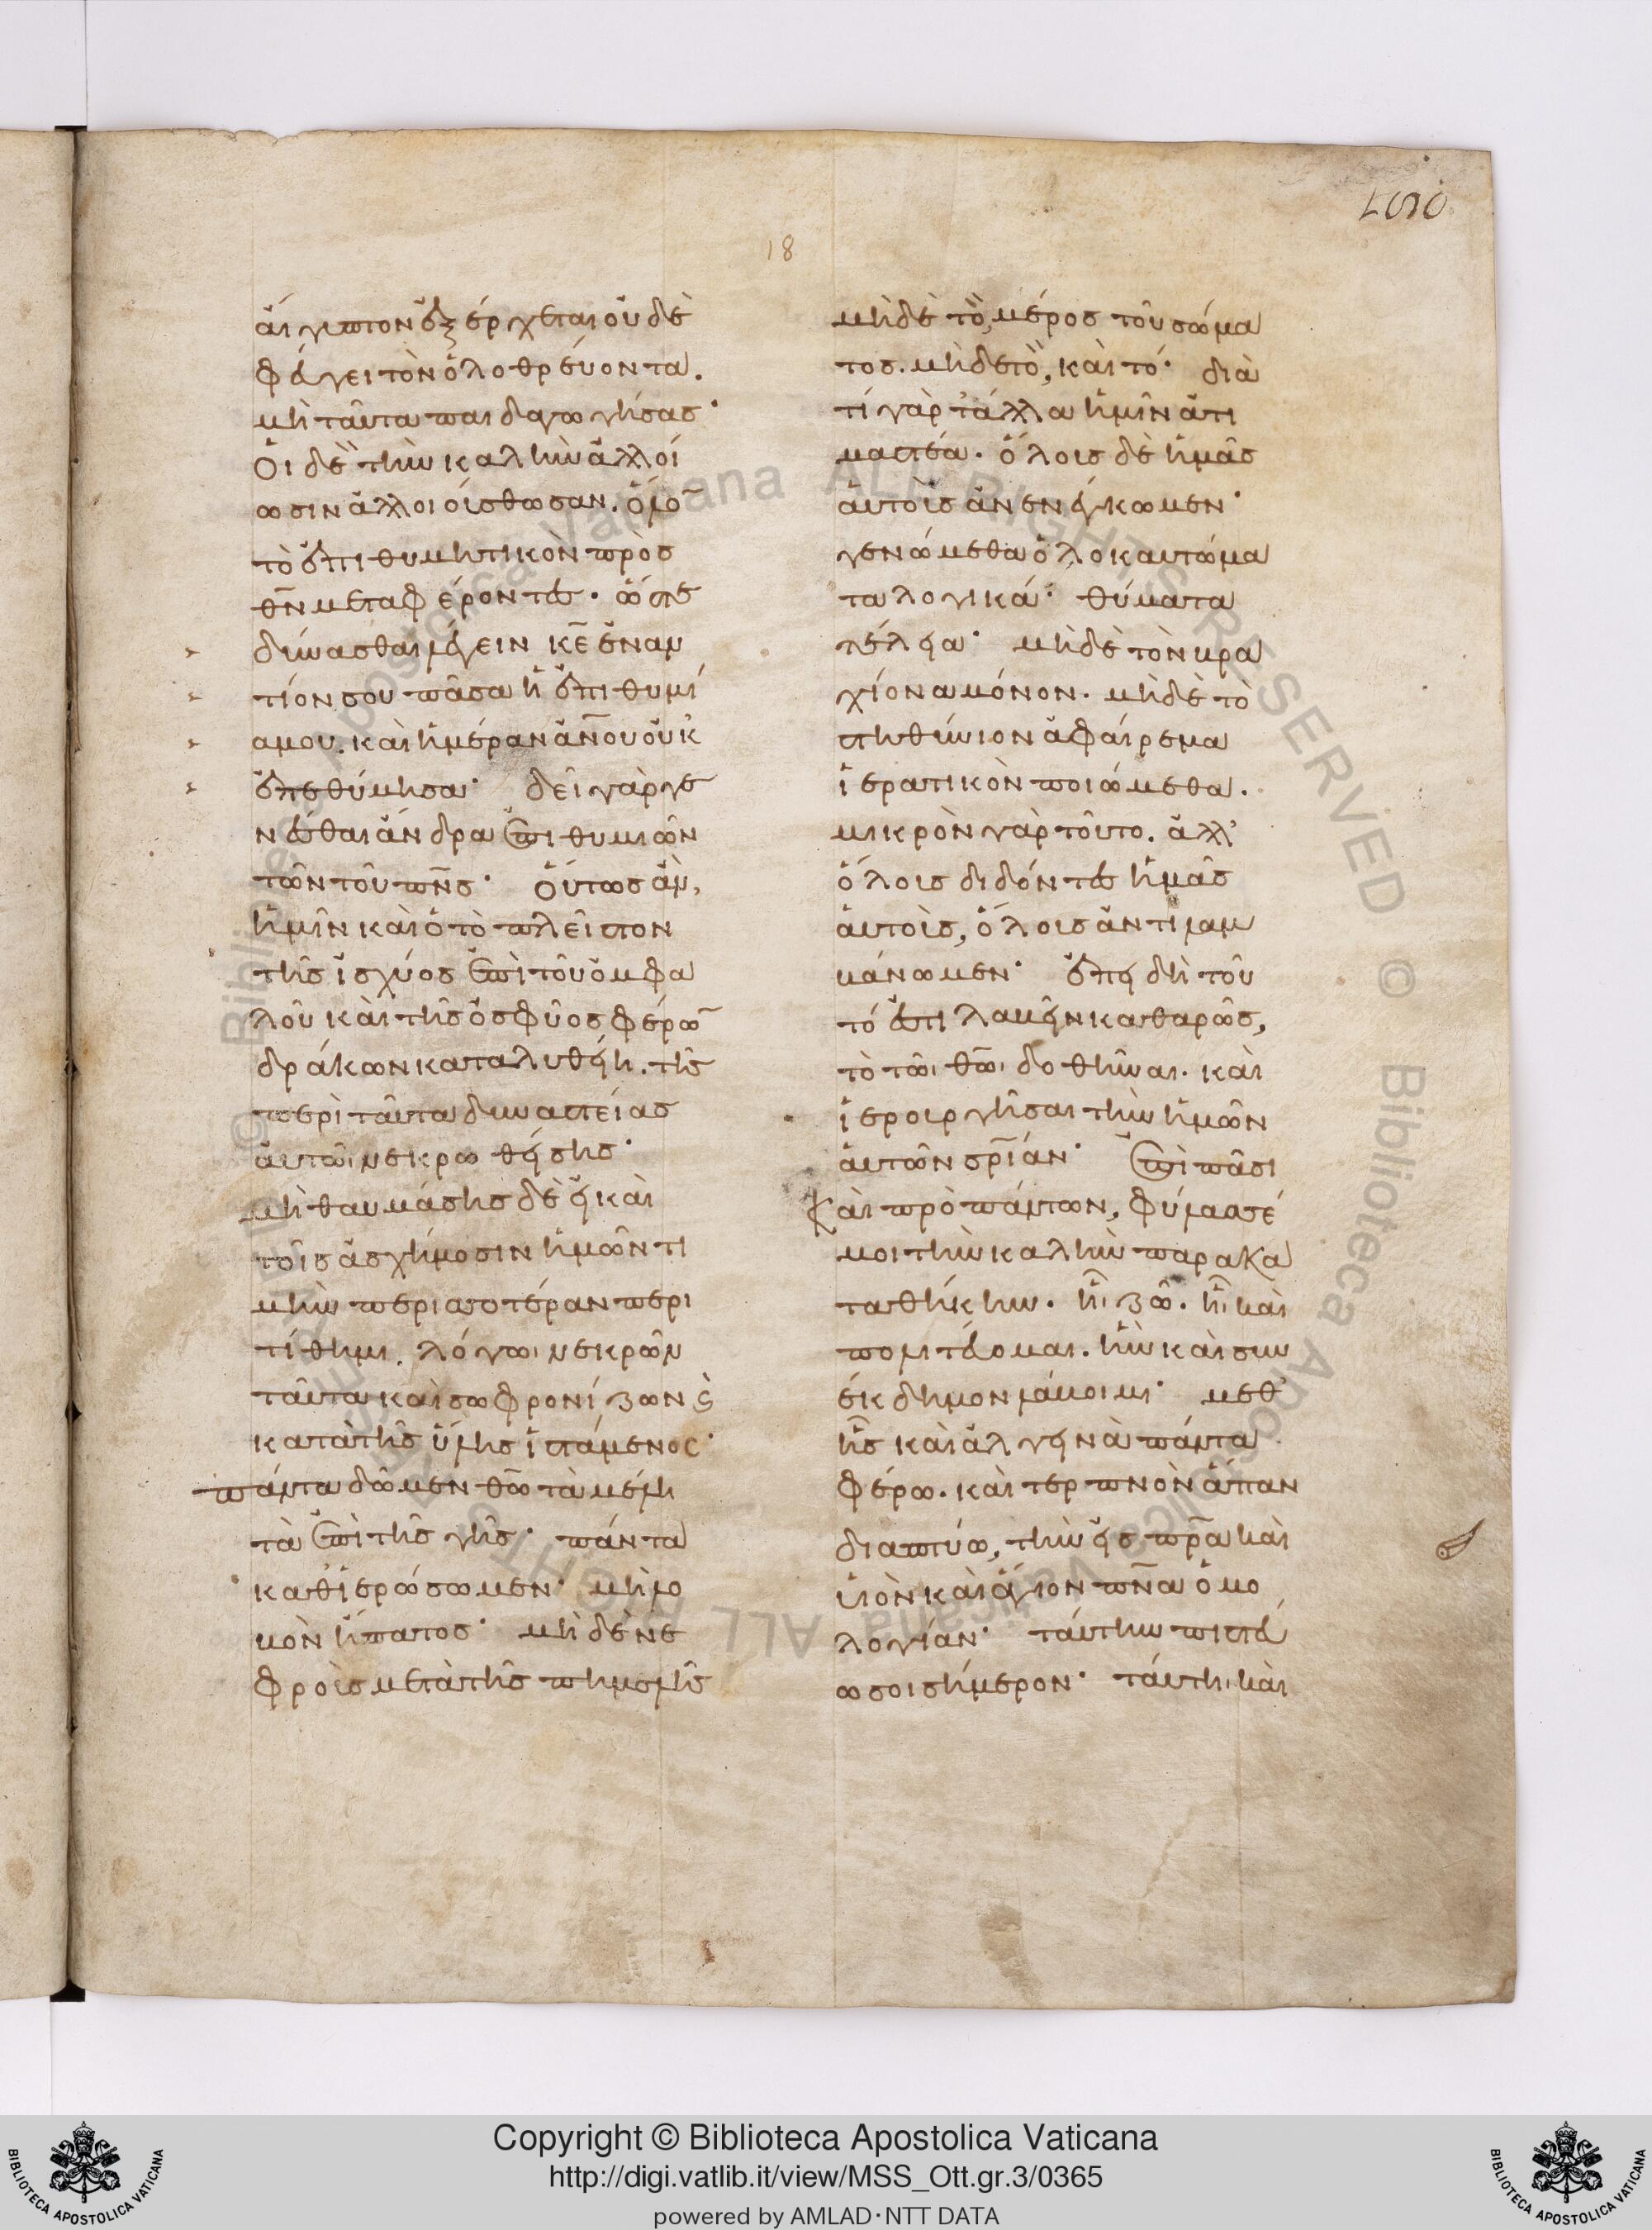 18
ἄιγυπτον ἐξέρχεται οὐδὲ
φεύγει τὸν ὀλοθρέυοντα.
μὴ ταῦτα παιδαγωγήσας·
Ὁι δὲ τὴν καλὴν ἀλλοί
ωσιν ἀλλοιούσθωσαν. ὅλο
τὸ ἐπιθυμητικὸν πρὸς
θν μεταφέροντες. ὥστε
δύνασθαι λέγειν κε ἐναν
τίον σου πᾶσα ἡ ἐπιθυμί
α μου. καὶ ἡμέραν ανου οὐκ
ἐπεθύμησα· δεῖ γὰρ γε
νέσθαι ἄνδρα ἐπιθυμιῶν
τῶν τοῦ πνς· Οὕτως ἂν,
ἡμῖν καὶ ὁ τὸ πλεῖστον
τῆς ἰσχύος ἐπὶ τοῦ ὀμφα
λοῦ καὶ τῆς ὀσφύος φέρω
δράκων καταλυθείη. τῆς
περὶ ταῦτα δυναστείας
αὐτῶι νεκρωθείσης·
μὴ θαυμάσης δὲ εἰ καὶ
τοῖς ἀσχήμοσιν ἡμῶν τι
μὴν περισσοτέραν περι
τίθημι. λόγωι νεκρῶν
ταῦτα καὶ σωφρονίζων ϛ
κατὰ τῆς ὕλης ἱστάμενος·
πάντα δῶμεν θω τὰ μέλη
τὰ ἐπὶ τῆς γῆς· πάντα
καθιερώσωμεν· μὴ λο
βὸν ἥπατος· μὴ δὲ νε
φροὺς μετὰ τῆς πιμελῆς
μὴ δὲ τὸ, μέρος τοῦ σώμα
τος. μὴ δὲ τὸ, καὶ τό· διὰ
τί γὰρ τἄλλα ἡμῖν ἀτι
μαστέα. ὅλους δὲ ἡμᾶς
αὐτοὺς ἀνενέγκωμεν·
γενώμεθα ὁλοκαυτώμα
τα λογικά· θύματα
τέλεια· μὴ δὲ τὸν βρα
χίονα μόνον. μὴ δὲ τὸ
στηθύνιον ἀφαίρεμα
ἱερατικὸν ποιώμεθα.
μικρὸν γὰρ τοῦτο. ἀλλ'
ὅλους διδόντες ἡμᾶς
αὐτοὺς, ὅλους ἀντιλαμ
βάνωμεν· ἐπειδὴ τοῦ
τό ἐστι λαβεῖν καθαρῶς,
τὸ τῶι θωι δοθῆναι. καὶ
ἱερουργῆσαι τὴν ἡμῶν
αὐτῶν σρίαν· ἐπὶ πᾶσι
καὶ πρὸ πάντων, φύλασσέ
μοι τὴν καλὴν παρακα
ταθήκην. ἧι ζῶ. ἧι καὶ
πολιτεύομαι. ἣν καὶ συν
έκδημον λάβοιμι· μεθ'
ἧς καὶ ἀλγεινὰ πάντα
φέρω. καὶ τερπνὸν ἅπαν
διαπτύω, τὴν εἰς πρα καὶ
ὑιὸν καὶ ἅγιον πνα ὁμο
λογίαν· ταύτην πιστεύ
ω σοι σήμερον· ταύτηι καὶ
Copyright © Biblioteca Apostolica Vaticana
http://digi.vatlib.it/view/MSS_Ott.gr.3/0365
powered by AMLAD·NTT DATA